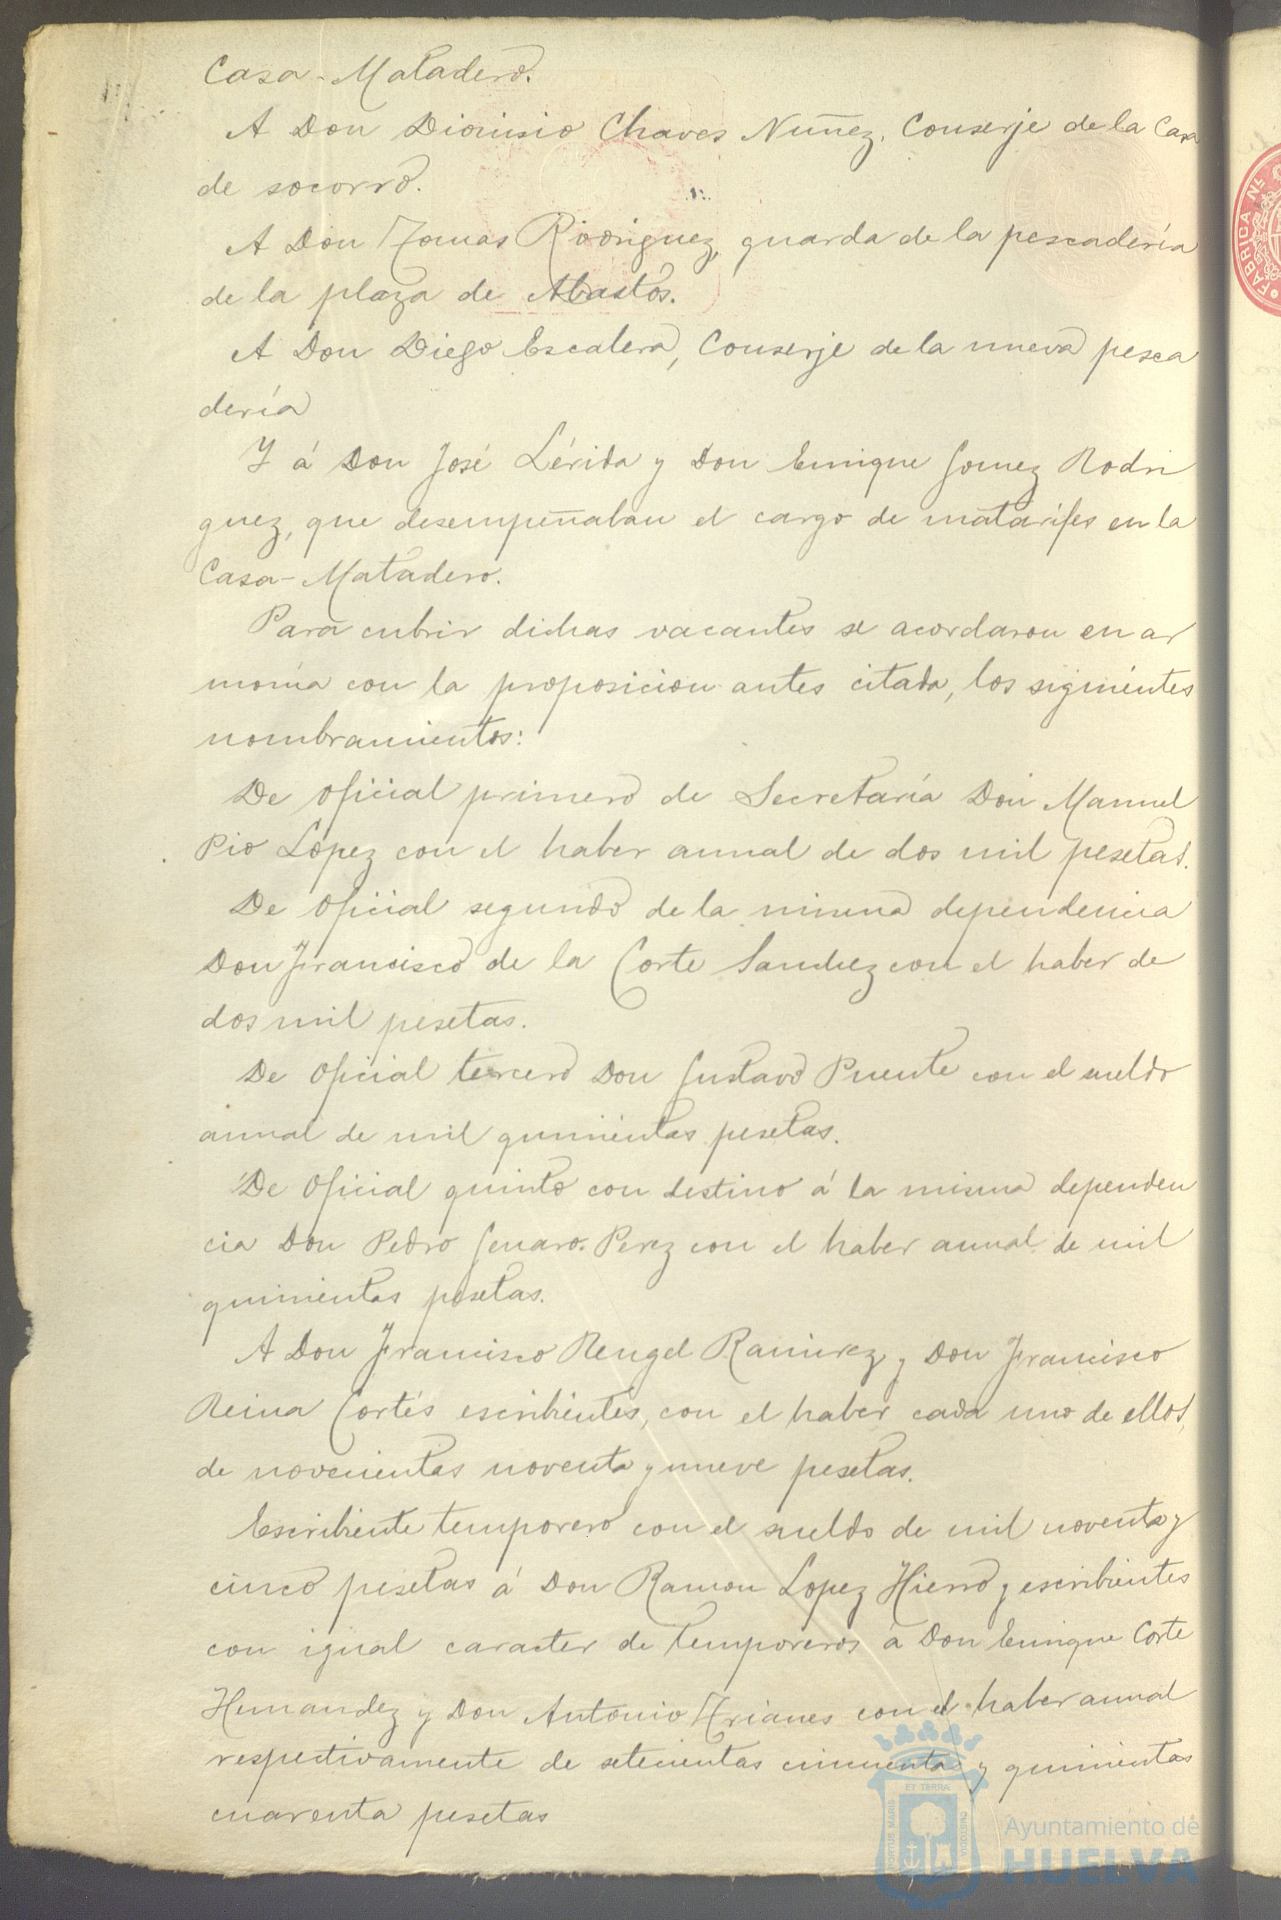 Casa-Matadero.
A Don Dionisio Chaves Nuñez, Conserje de la Casa
de socorro.
A Don Tomas Rodriguez, guarda de la pescadería
de la plaza de Abastos.
A Don Diego Escalera, Conserje de la nueva pesca
dería
Y á Don José Lérida y Don Enrique Gomez Rodri
guez, que desempeñaban el cargo de matarifes en la
Casa-Matadero.
Para cubrir dichas vacantes se acordaron en ar
monía con la proposicion antes citada, los siguientes
nombramientos:
De oficial primero de Secretaría Don Manuel
Pio Lopez con el haber anual de dos mil pesetas.
De oficial segundo de la misma dependencia
Don Francisco de la Corte Sanchez con el haber de
dos mil pesetas.
De oficial tercero Don Gustavo Puente con el sueldo
anual de mil quinientas pesetas.
De oficial quinto con destino á la misma dependen
cia Don Pedro Genaro Perez con el haber anual de mil
quinientas pesetas.
A Don Francisco Rengel Ramirez y Don Francisco
Reina Cortés escribientes, con el haber cada uno de ellos,
de novecientas noventa y nueve pesetas.
Escribiente temporero con el sueldo de mil noventa y
cinco pesetas á Don Ramon Lopez Hierro y escribientes
con igual caracter de temporeros á Don Enrique Corte
Hernandez y Don Antonio Trianes con el haber anual
respectivamente de setecientas cincuenta y quinientas
cuarenta pesetas
FABRICA NL
PORTUS MARIS ET TERRÆ CUSTODIA
Ayuntamiento de
HUELVA